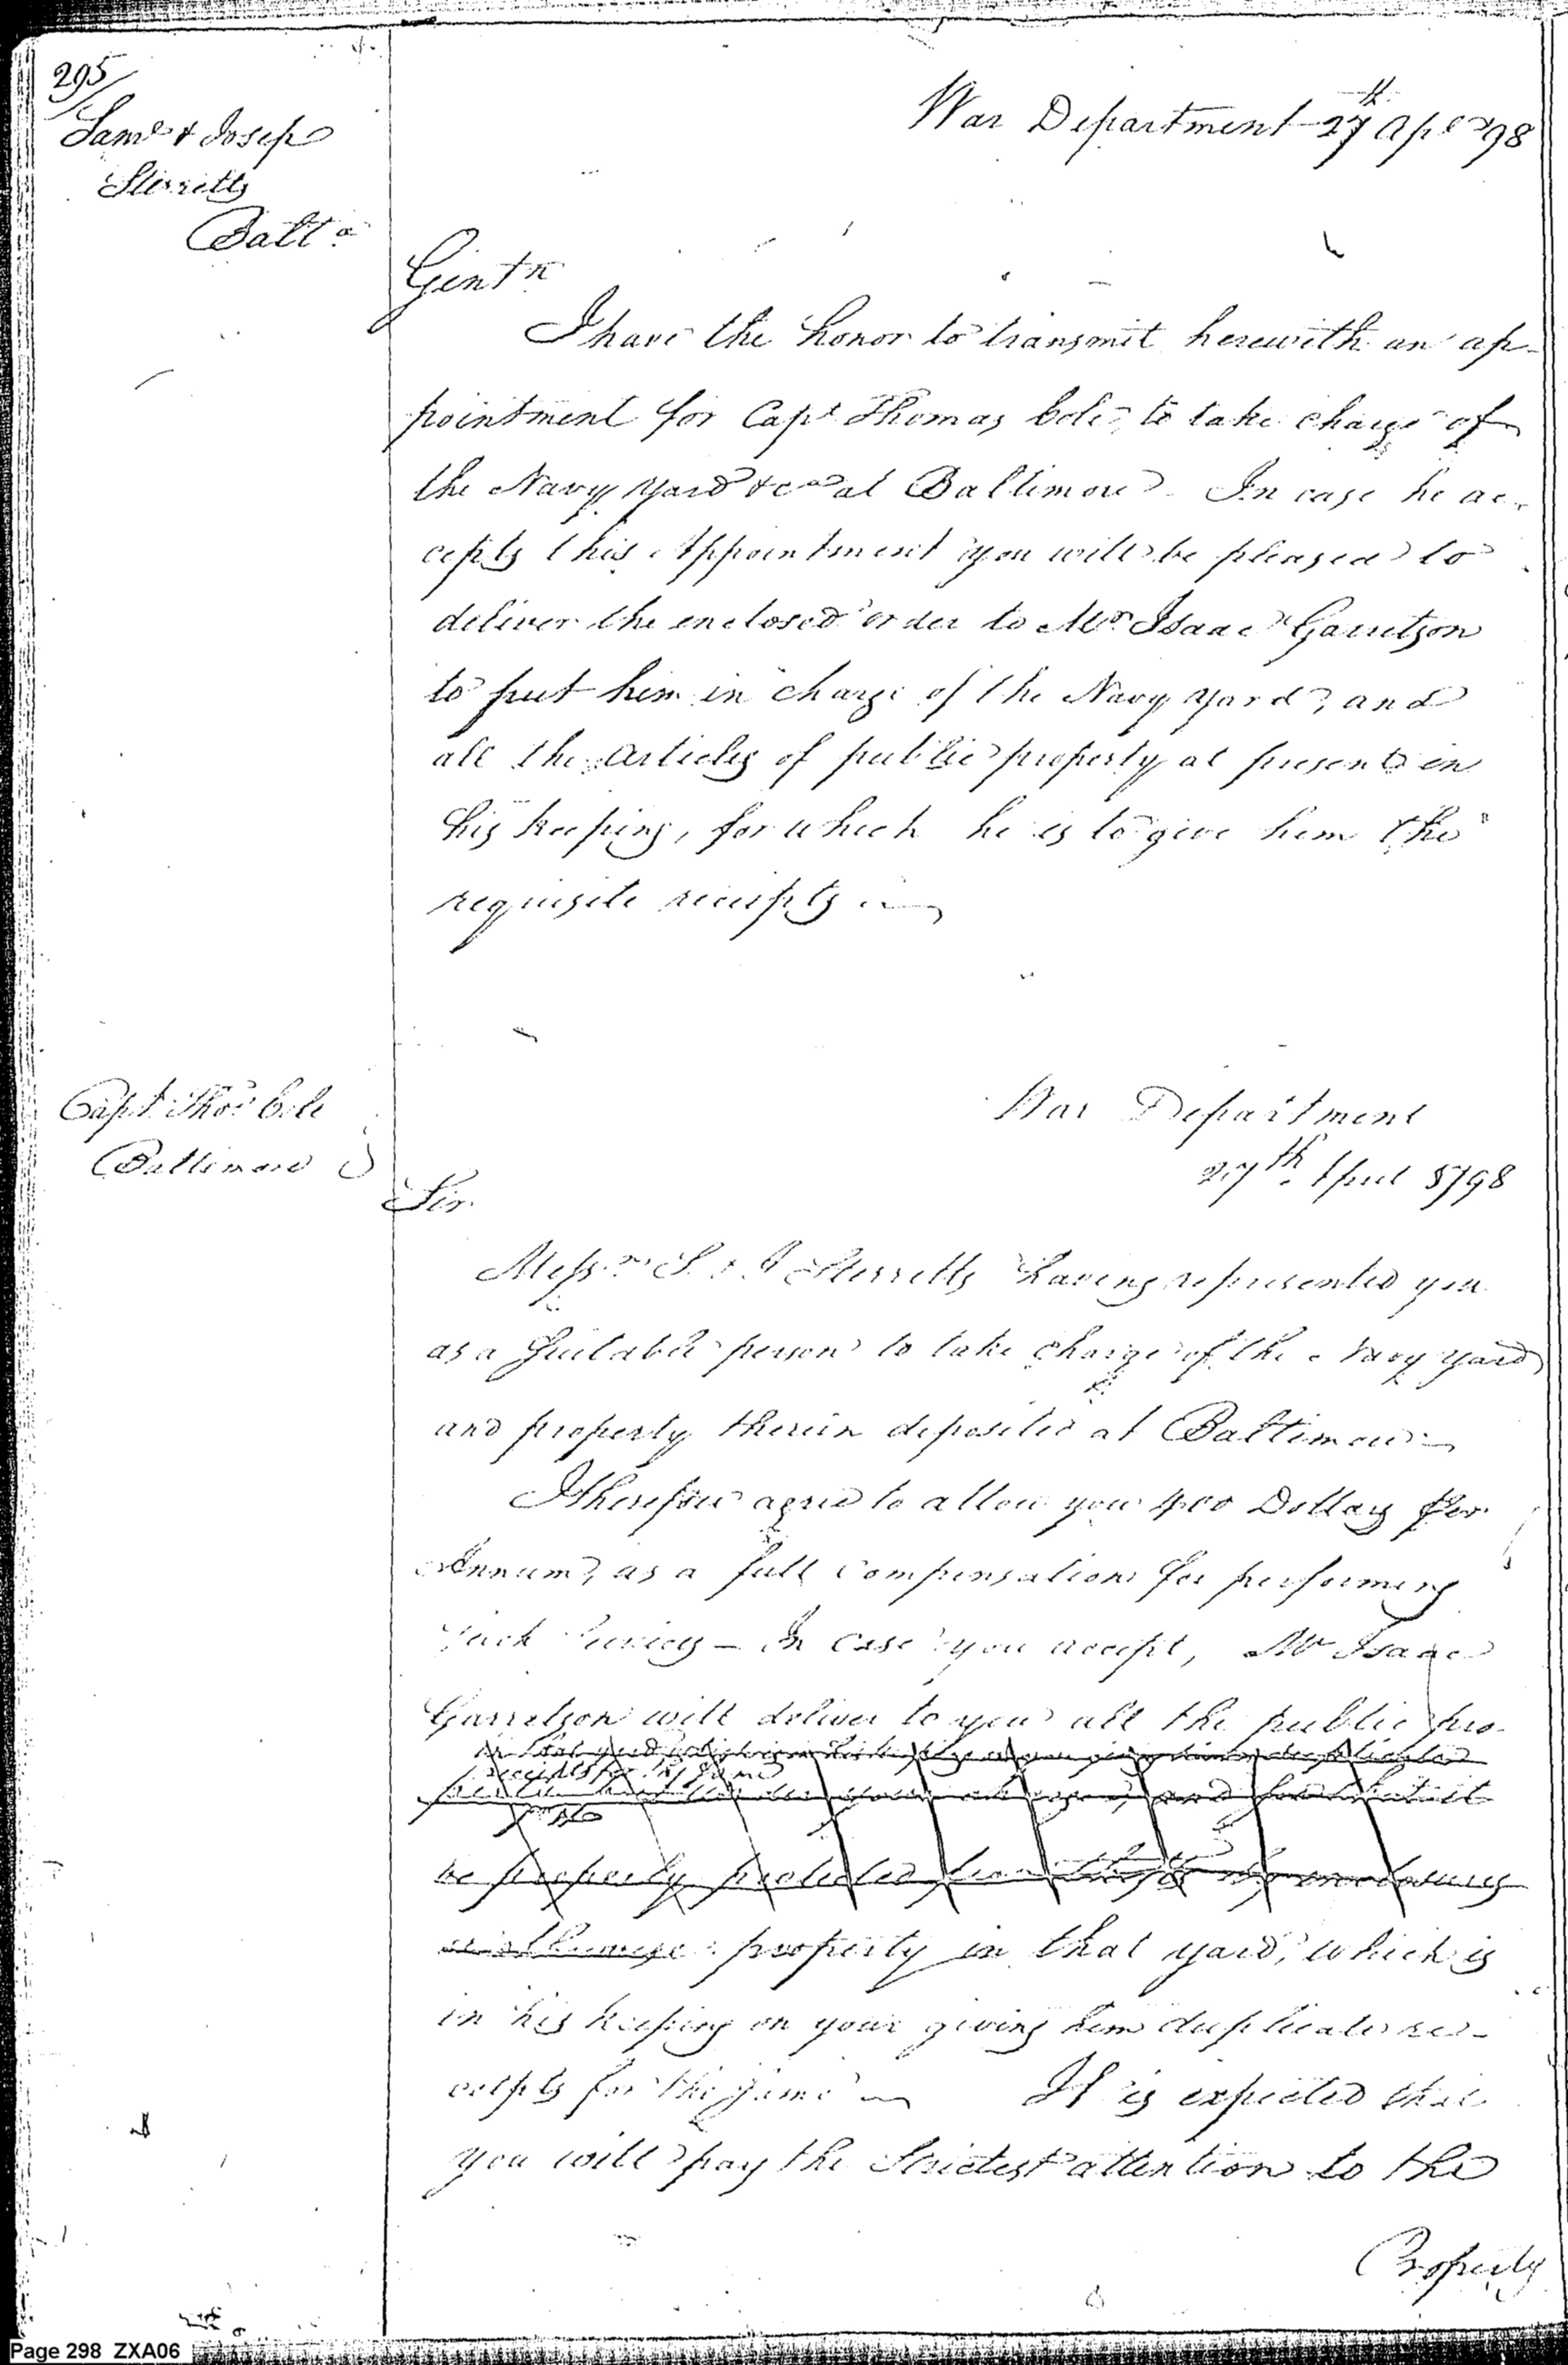 295
Saml & Josep
Sterretts
Balto
War Department 27th Apl 798
Gentn
I have the honor to transmit herewith an ap-
pointment for Capt Thomas Cole, to take charge of
the Navy Yard &ca at Baltimore. In case he ac-
cepts this Appointment you will be pleased to
deliver the enclosed order to Mr Isaac Garretson
to put him in charge of the Navy Yard, and
all the articles of public property at present in
his keeping, for which he is to give him the
requisite receipts
Capt Thos Cole
Baltimore
War Department
27th April 1798
Sir
Messrs S & J Sterretts having represented you
as a suitable person to take charge of the Navy yard
and property therein deposited at Baltimore
I therefore agree to allow you 400 Dollars per
Annum, as a full compensation for performing
such Services – In case you accept, Mr Isaac
Garretson will deliver to you all the public pro-
in that yard which is in his keeping on your giving him duplicate
receipts for the same
your charge, and see that it
be properly protected from
or otherwise property in that yard, which is
in his keeping on your giving him duplicate re-
ceipts for the same It is expected that
you will pay the Strictest attention to the
Property
Page 298 ZXA06